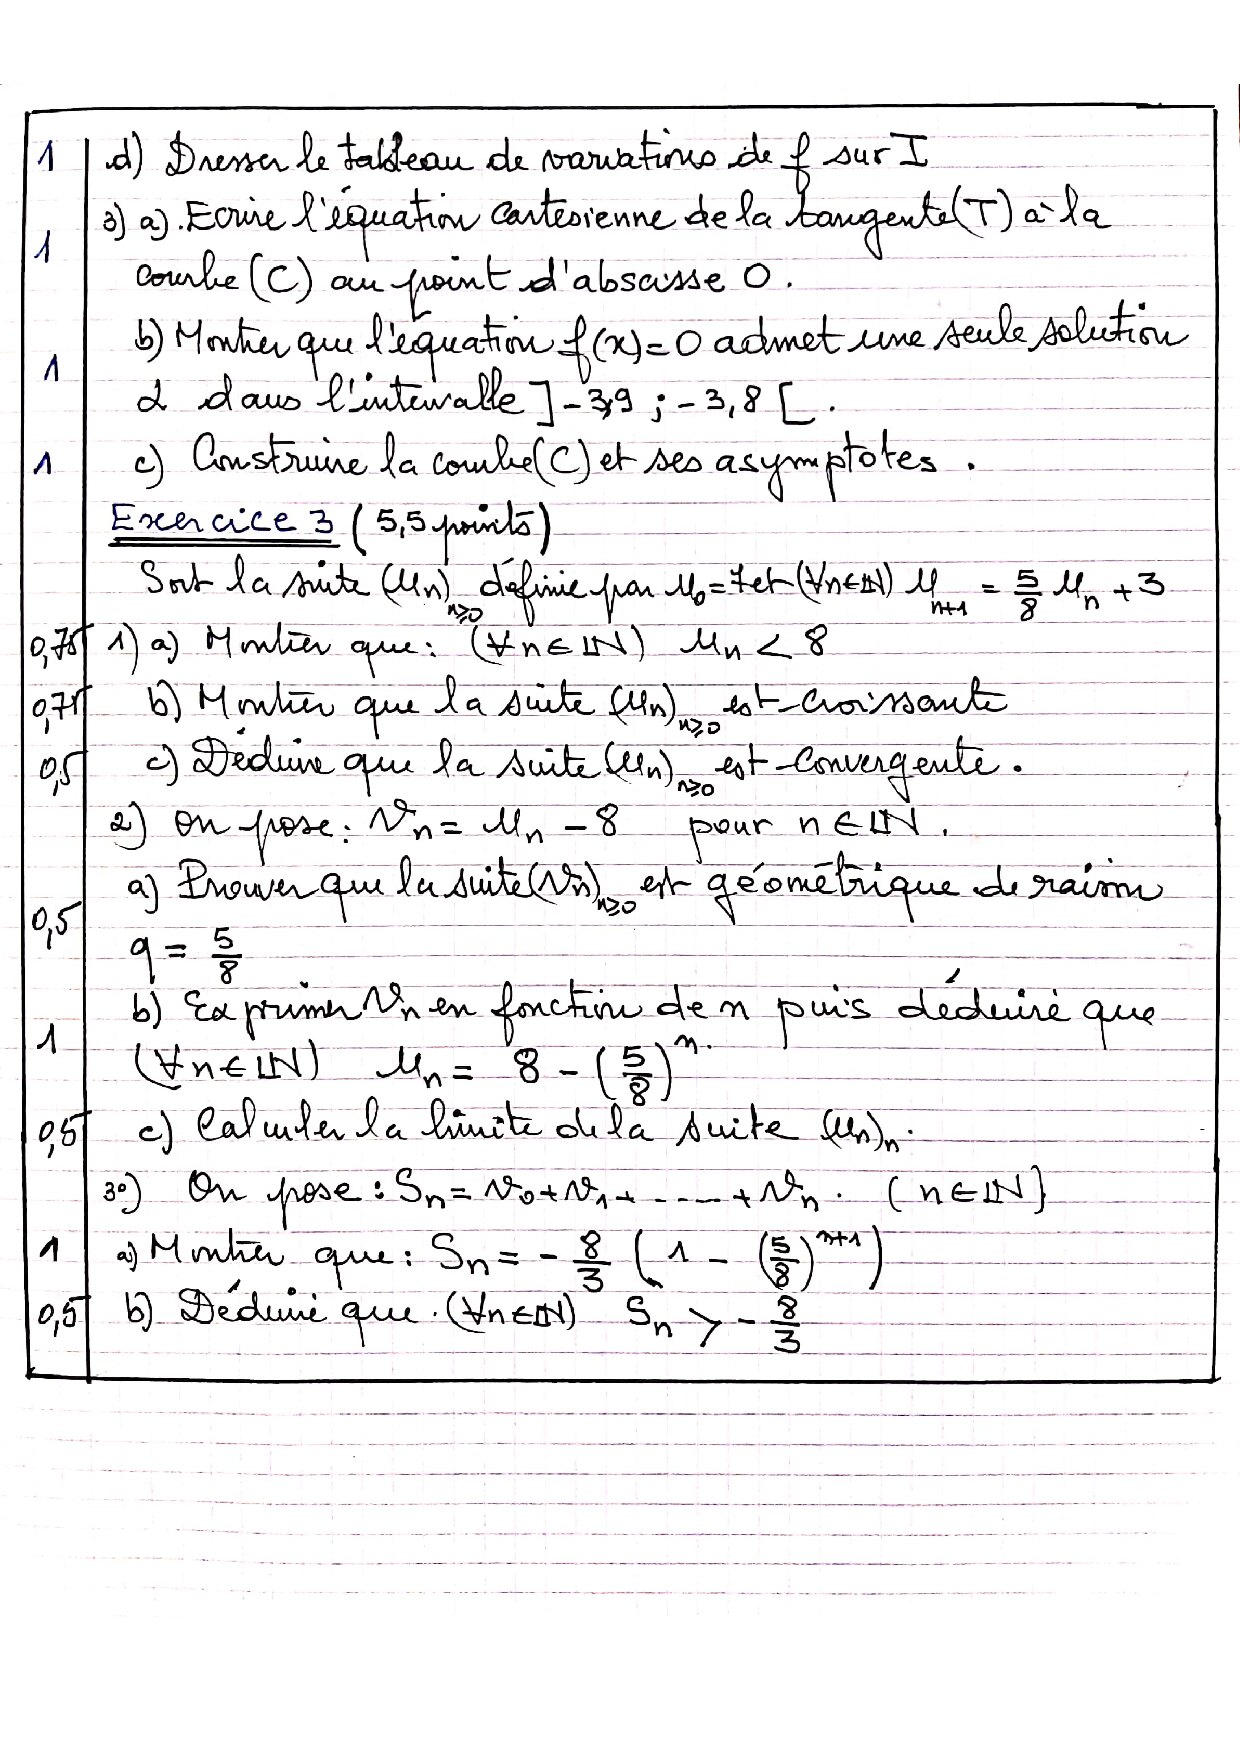 1 d) Dresser le tableau de variations de f sur I
1 3) a). Ecrire l'équation cartésienne de la tangente (T) à la
courbe (C) au point d'abscisse 0.
b) Montrer que l'équation f(x)=0 admet une seule solution
1 α dans l'intervalle ]-3,9 ; -3,8[.
1 c) Construire la courbe (C) et ses asymptotes.
Exercice 3 (5,5 points)
Soit la suite (Un)n≥0 définie par U0=7 et (∀n∈IN) Un+1 = 5/8 Un + 3
0,75 1) a) Montrer que : (∀n∈IN) Un < 8
0,75 b) Montrer que la suite (Un)n≥0 est croissante
0,5 c) Déduire que la suite (Un)n≥0 est convergente.
2) On pose : Vn = Un - 8 pour n∈IN.
a) Prouver que la suite (Vn)n≥0 est géométrique de raison
0,5 q = 5/8
b) Exprimer Vn en fonction de n puis déduire que
1 (∀n∈IN) Un = 8 - (5/8)^n.
0,5 c) Calculer la limite de la suite (Un)n.
3°) On pose : Sn = V0+V1+ ..... + Vn. (n∈IN)
1 a) Montrer que : Sn = - 8/3 (1 - (5/8)^n+1)
0,5 b) Déduire que. (∀n∈IN) Sn > - 8/3